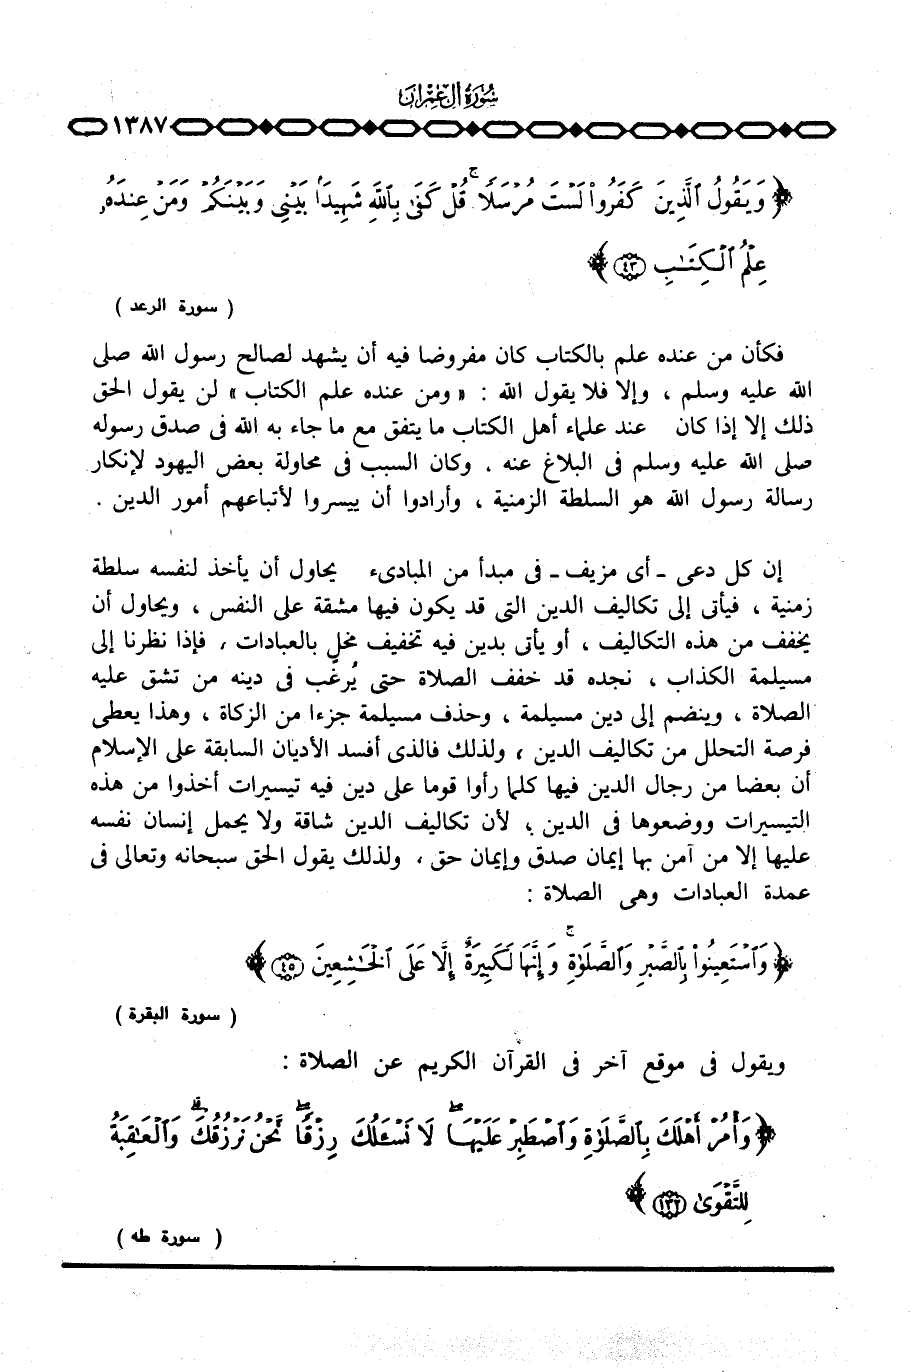 سُورَةُ آلِ عِمْرَانَ
١٣٨٧
﴿ وَيَقُولُ ٱلَّذِينَ كَفَرُوا۟ لَسْتَ مُرْسَلًا ۚ قُلْ كَفَىٰ بِٱللَّهِ شَهِيدًۢا بَيْنِى وَبَيْنَكُمْ وَمَنْ عِندَهُۥ
عِلْمُ ٱلْكِتَـٰبِ ٤٣ ﴾
( سورة الرعد )
فكأن من عنده علم بالكتاب كان مفروضا فيه أن يشهد لصالح رسول الله صلى
الله عليه وسلم ، وإلا فلا يقول الله : « ومن عنده علم الكتاب » لن يقول الحق
ذلك إلا إذا كان عند علماء أهل الكتاب ما يتفق مع ما جاء به الله فى صدق رسوله
صلى الله عليه وسلم فى البلاغ عنه . وكان السبب فى محاولة بعض اليهود لإنكار
رسالة رسول الله هو السلطة الزمنية ، وأرادوا أن ييسروا لأتباعهم أمور الدين .
إن كل دعى ـ أى مزيف ـ فى مبدأ من المبادىء يحاول أن يأخذ لنفسه سلطة
زمنية ، فيأتى إلى تكاليف الدين التى قد يكون فيها مشقة على النفس ، ويحاول أن
يخفف من هذه التكاليف ، أو يأتى بدين فيه تخفيف مخلٍ بالعبادات ، فإذا نظرنا إلى
مسيلمة الكذاب ، نجده قد خفف الصلاة حتى يُرغب فى دينه من تشق عليه
الصلاة ، وينضم إلى دين مسيلمة ، وحذف مسيلمة جزءا من الزكاة ، وهذا يعطى
فرصة التحلل من تكاليف الدين ، ولذلك فالذى أفسد الأديان السابقة على الإسلام
أن بعضا من رجال الدين فيها كلما رأوا قوما على دين فيه تيسيرات أخذوا من هذه
التيسيرات ووضعوها فى الدين ، لأن تكاليف الدين شاقة ولا يحمل إنسان نفسه
عليها إلا من آمن بها إيمان صدق وإيمان حق ، ولذلك يقول الحق سبحانه وتعالى فى
عمدة العبادات وهى الصلاة :
﴿ وَٱسْتَعِينُوا۟ بِٱلصَّبْرِ وَٱلصَّلَوٰةِ ۚ وَإِنَّهَا لَكَبِيرَةٌ إِلَّا عَلَى ٱلْخَـٰشِعِينَ ٤٥ ﴾
( سورة البقرة )
ويقول فى موقع آخر فى القرآن الكريم عن الصلاة :
﴿ وَأْمُرْ أَهْلَكَ بِٱلصَّلَوٰةِ وَٱصْطَبِرْ عَلَيْهَا ۖ لَا نَسْـَٔلُكَ رِزْقًا ۖ نَّحْنُ نَرْزُقُكَ ۗ وَٱلْعَـٰقِبَةُ
لِلتَّقْوَىٰ ١٣٢ ﴾
( سورة طه )